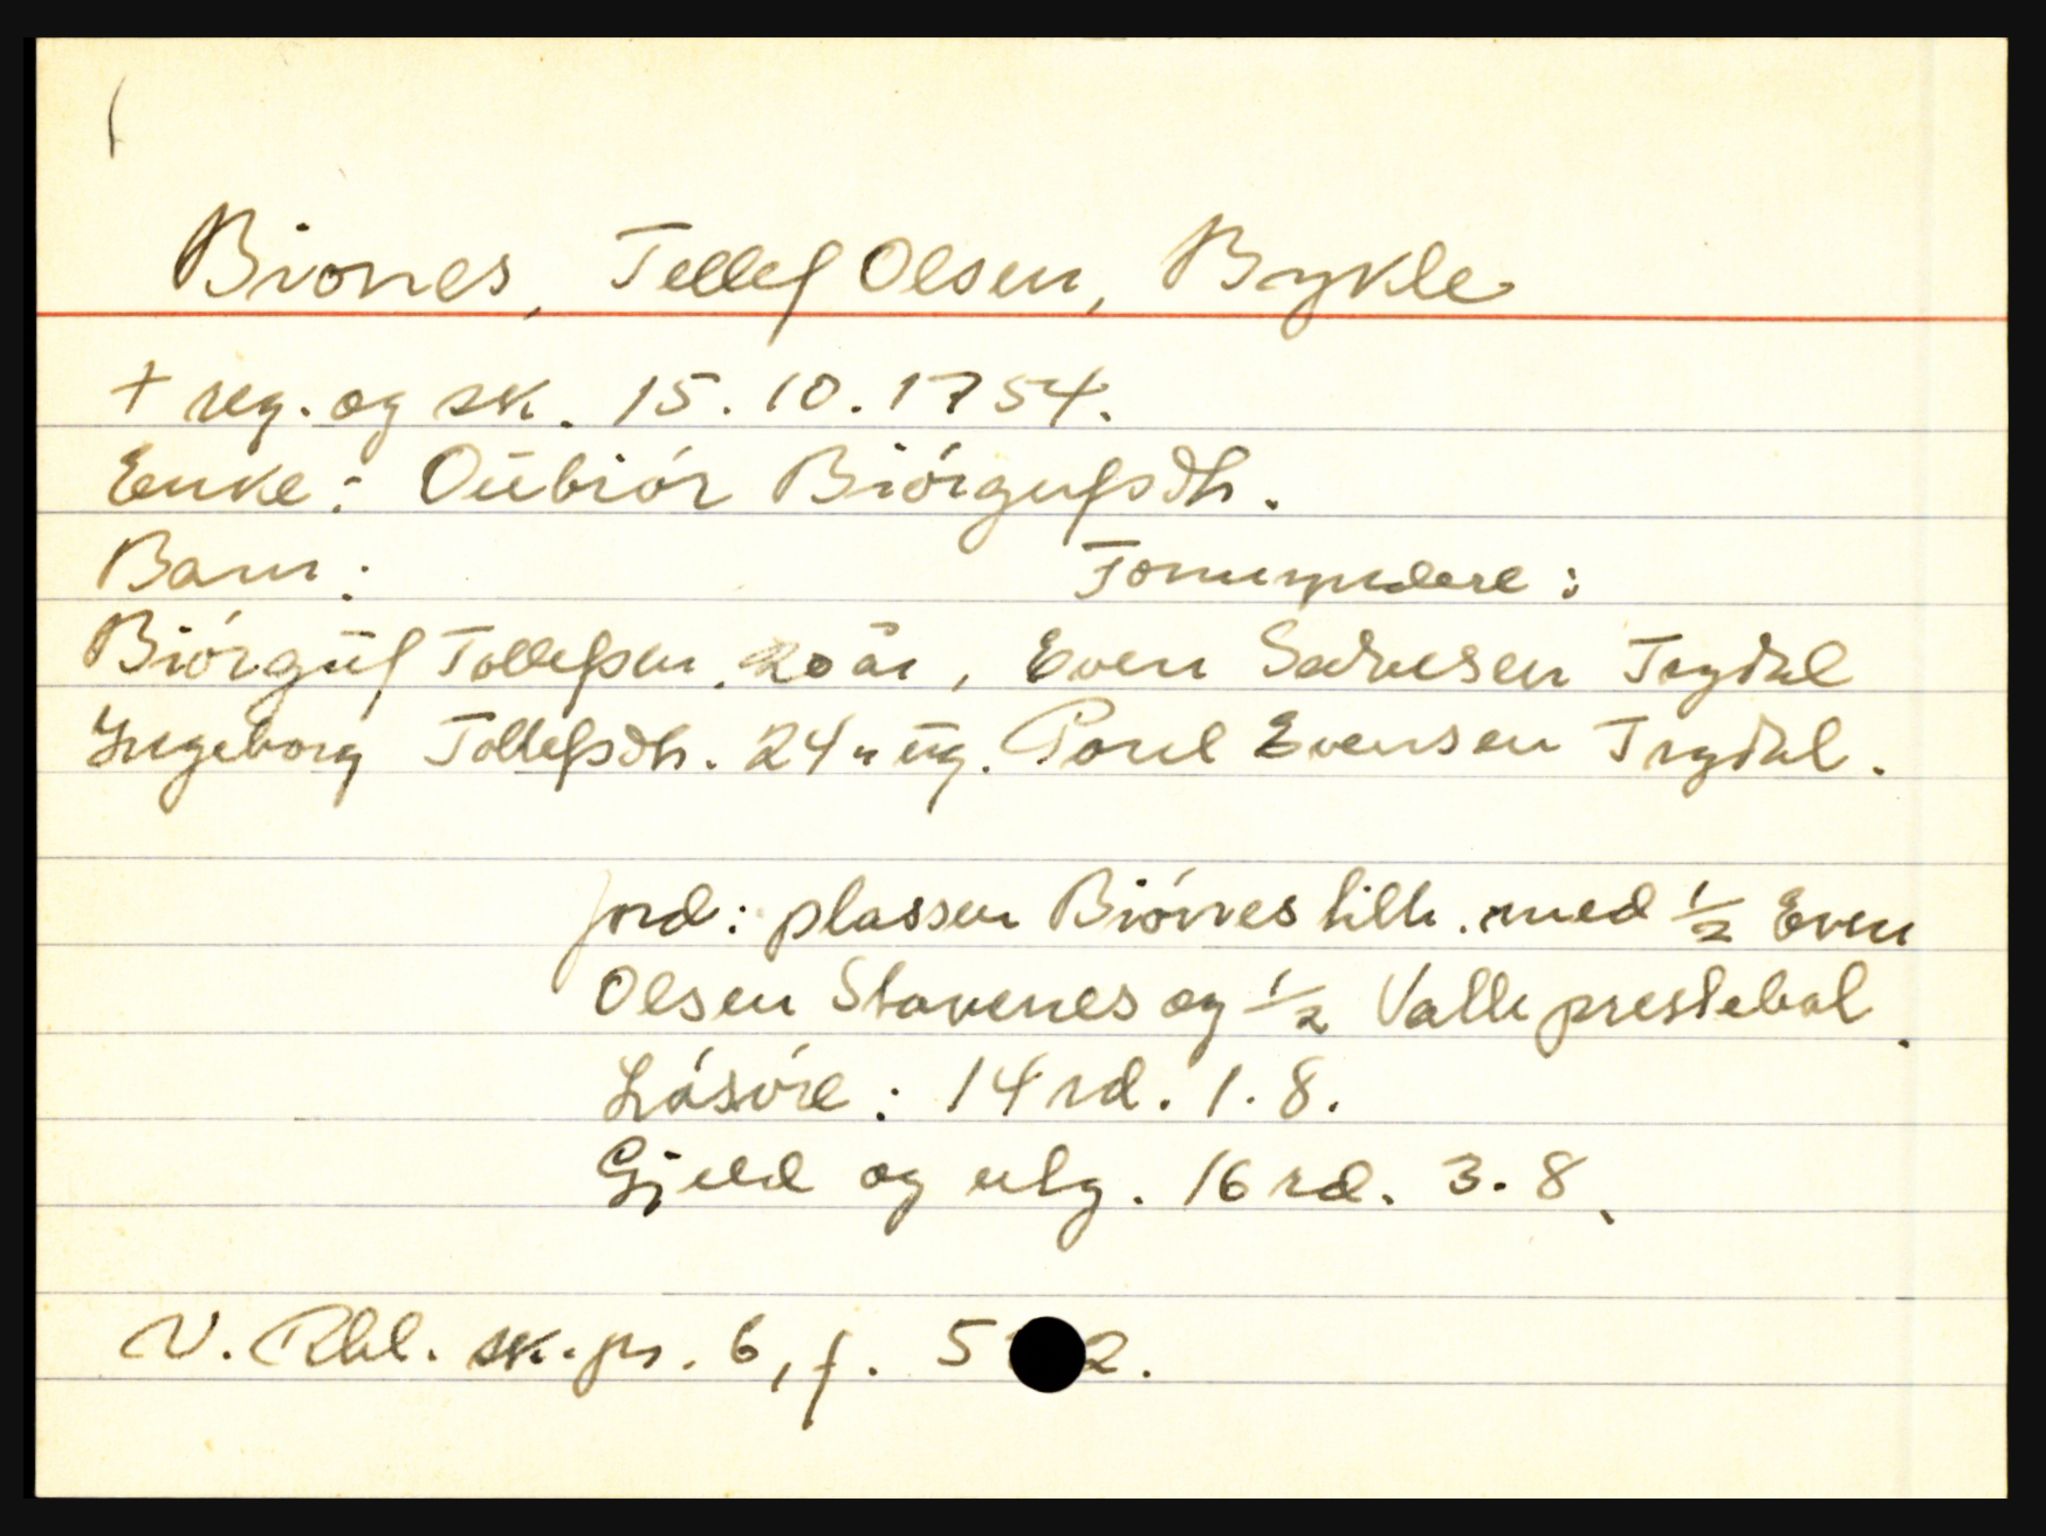 Biones, Tellef Olsen, Bykle
+ reg. og sk. 15.10.1754.
Enke: Oūbiór Biórgufsdtr.
Barn: Formyndere:
Biórgūf Tollefsen. 20 år, Even Salvesen Trydal
Ingeborg Tollefsdtr. 24 " ūg. Poul Evensen Trydal.
Jord: plassen Biónes tilh. med 1/2 Even
Olsen Stavenes og 1/2 Valle prestebol.
Lósóre: 14 rd. 1.8.
Gjeld og utg. 16 rd. 3.8.
V. Rbl. sk.pr. 6, f. 5 2.